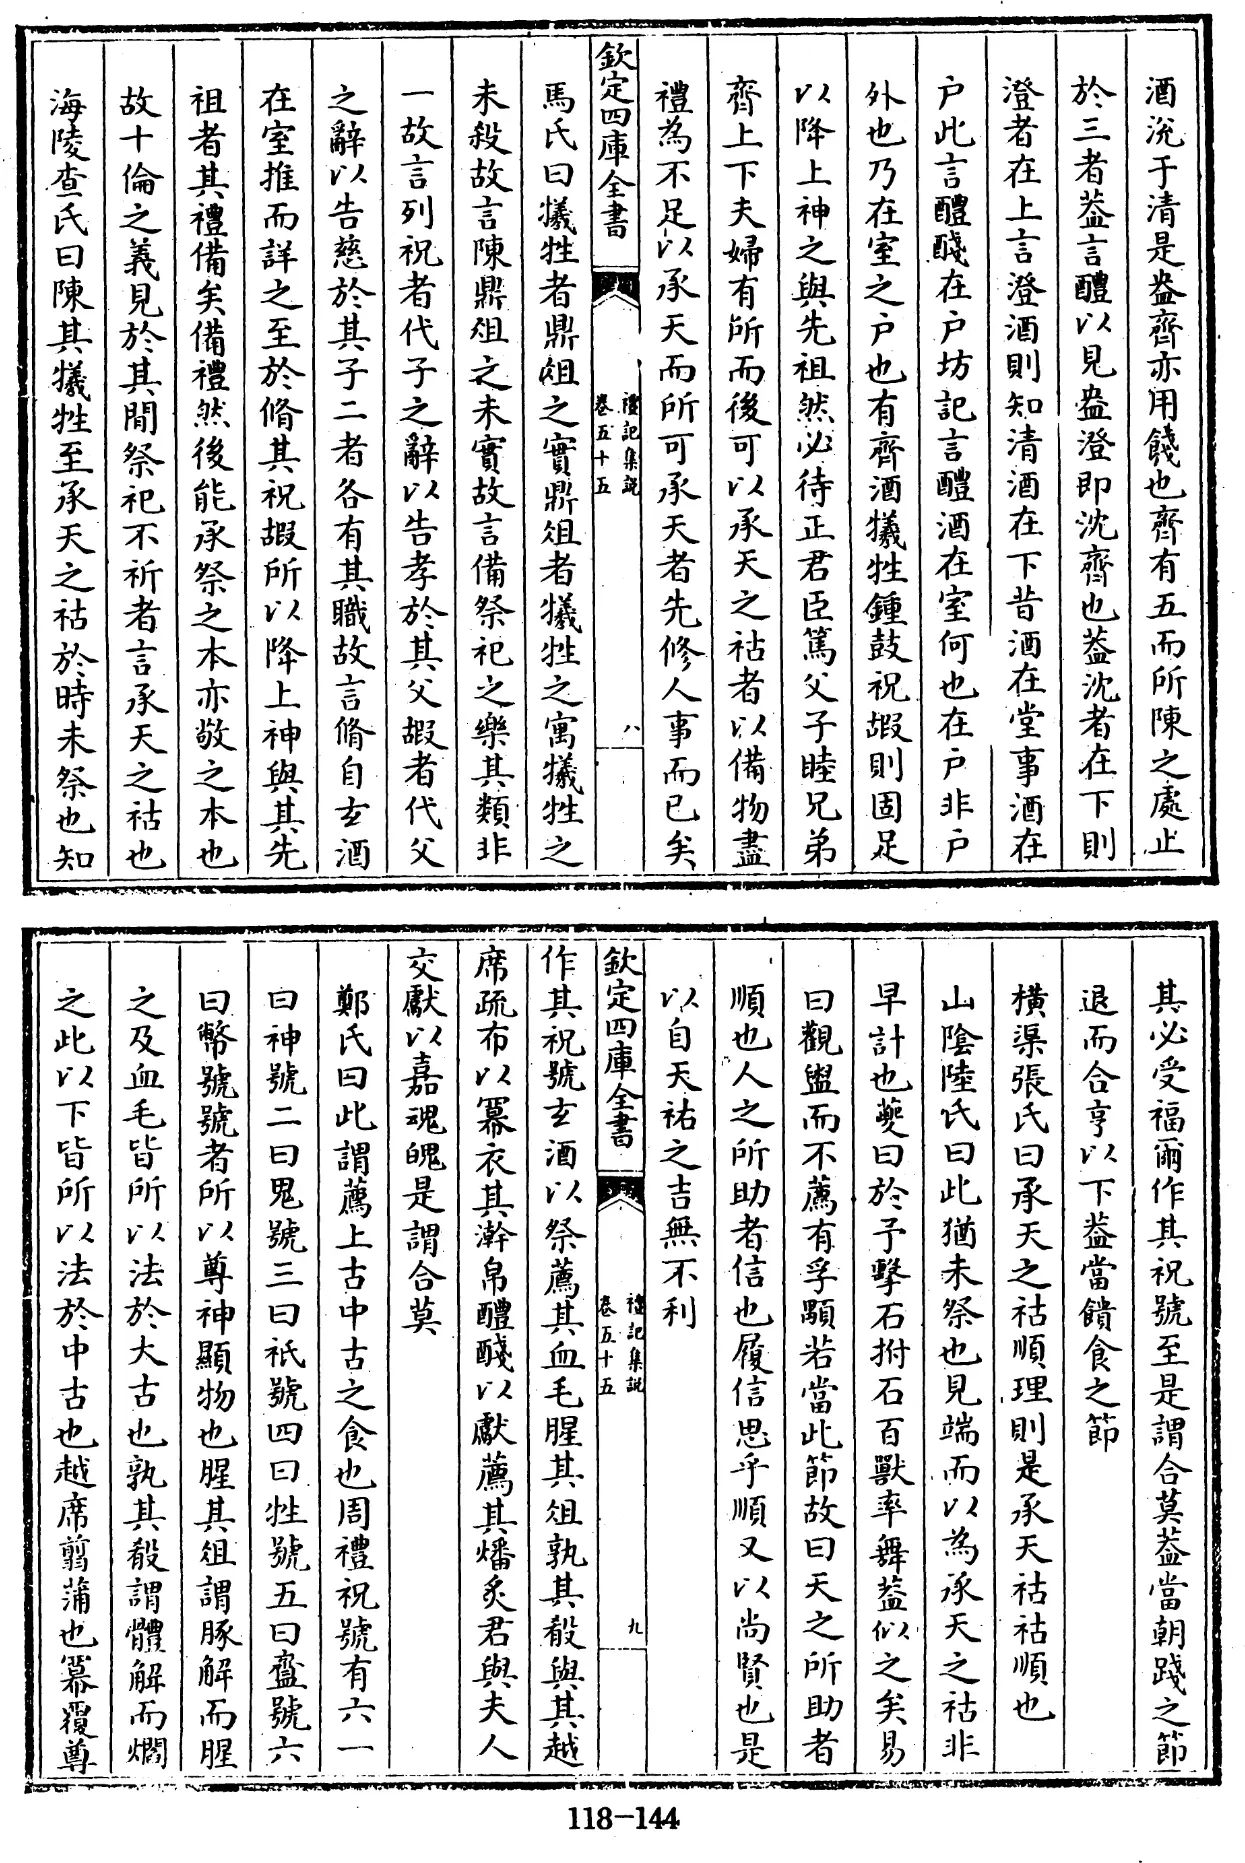 酒涗于清是盎齊亦用餞也齊有五而所陳之處止
於三者葢言醴以見盎澄即沈齊也葢沈者在下則
澄者在上言澄酒則知清酒在下昔酒在堂事酒在
户此言醴醆在户坊記言醴酒在室何也在户非户
外也乃在室之户也有齊酒犧牲鍾鼓祝嘏則固足
以降上神之與先祖然必待正君臣篤父子睦兄弟
齊上下夫婦有所而後可以承天之祜者以備物盡
禮為不足以承天而所可承天者先修人事而已矣
欽定四庫全書
禮記集説
卷五十五
八
馬氏曰犧牲者鼎俎之實鼎俎者犧牲之寓犧牲之
未殺故言陳鼎俎之未實故言備祭祀之樂其類非
一故言列祝者代子之辭以告孝於其父嘏者代父
之辭以告慈於其子二者各有其職故言脩自玄酒
在室推而詳之至於脩其祝嘏所以降上神與其先
祖者其禮備矣備禮然後能承祭之本亦敬之本也
故十倫之義見於其間祭祀不祈者言承天之祜也
海陵查氏曰陳其犧牲至承天之祜於時未祭也知
其必受福爾作其祝號至是謂合莫葢當朝踐之節
退而合亨以下葢當饋食之節
横渠張氏曰承天之祜順理則是承天祜祜順也
山陰陸氏曰此猶未祭也見端而以為承天之祜非
早計也夔曰於予擊石拊石百獸率舞葢似之矣易
曰觀盥而不薦有孚顒若當此節故曰天之所助者
順也人之所助者信也履信思乎順又以尚賢也是
以自天祐之吉無不利
欽定四庫全書
禮記集説
卷五十五
九
作其祝號玄酒以祭薦其血毛腥其俎孰其殽與其越
席疏布以冪衣其澣帛醴醆以獻薦其燔炙君與夫人
交獻以嘉魂魄是謂合莫
鄭氏曰此謂薦上古中古之食也周禮祝號有六一
曰神號二曰鬼號三曰祇號四曰牲號五曰齍號六
曰幣號號者所以尊神顯物也腥其俎謂豚解而腥
之及血毛皆所以法於大古也孰其殽謂體解而爓
之此以下皆所以法於中古也越席翦蒲也冪覆尊
118-144